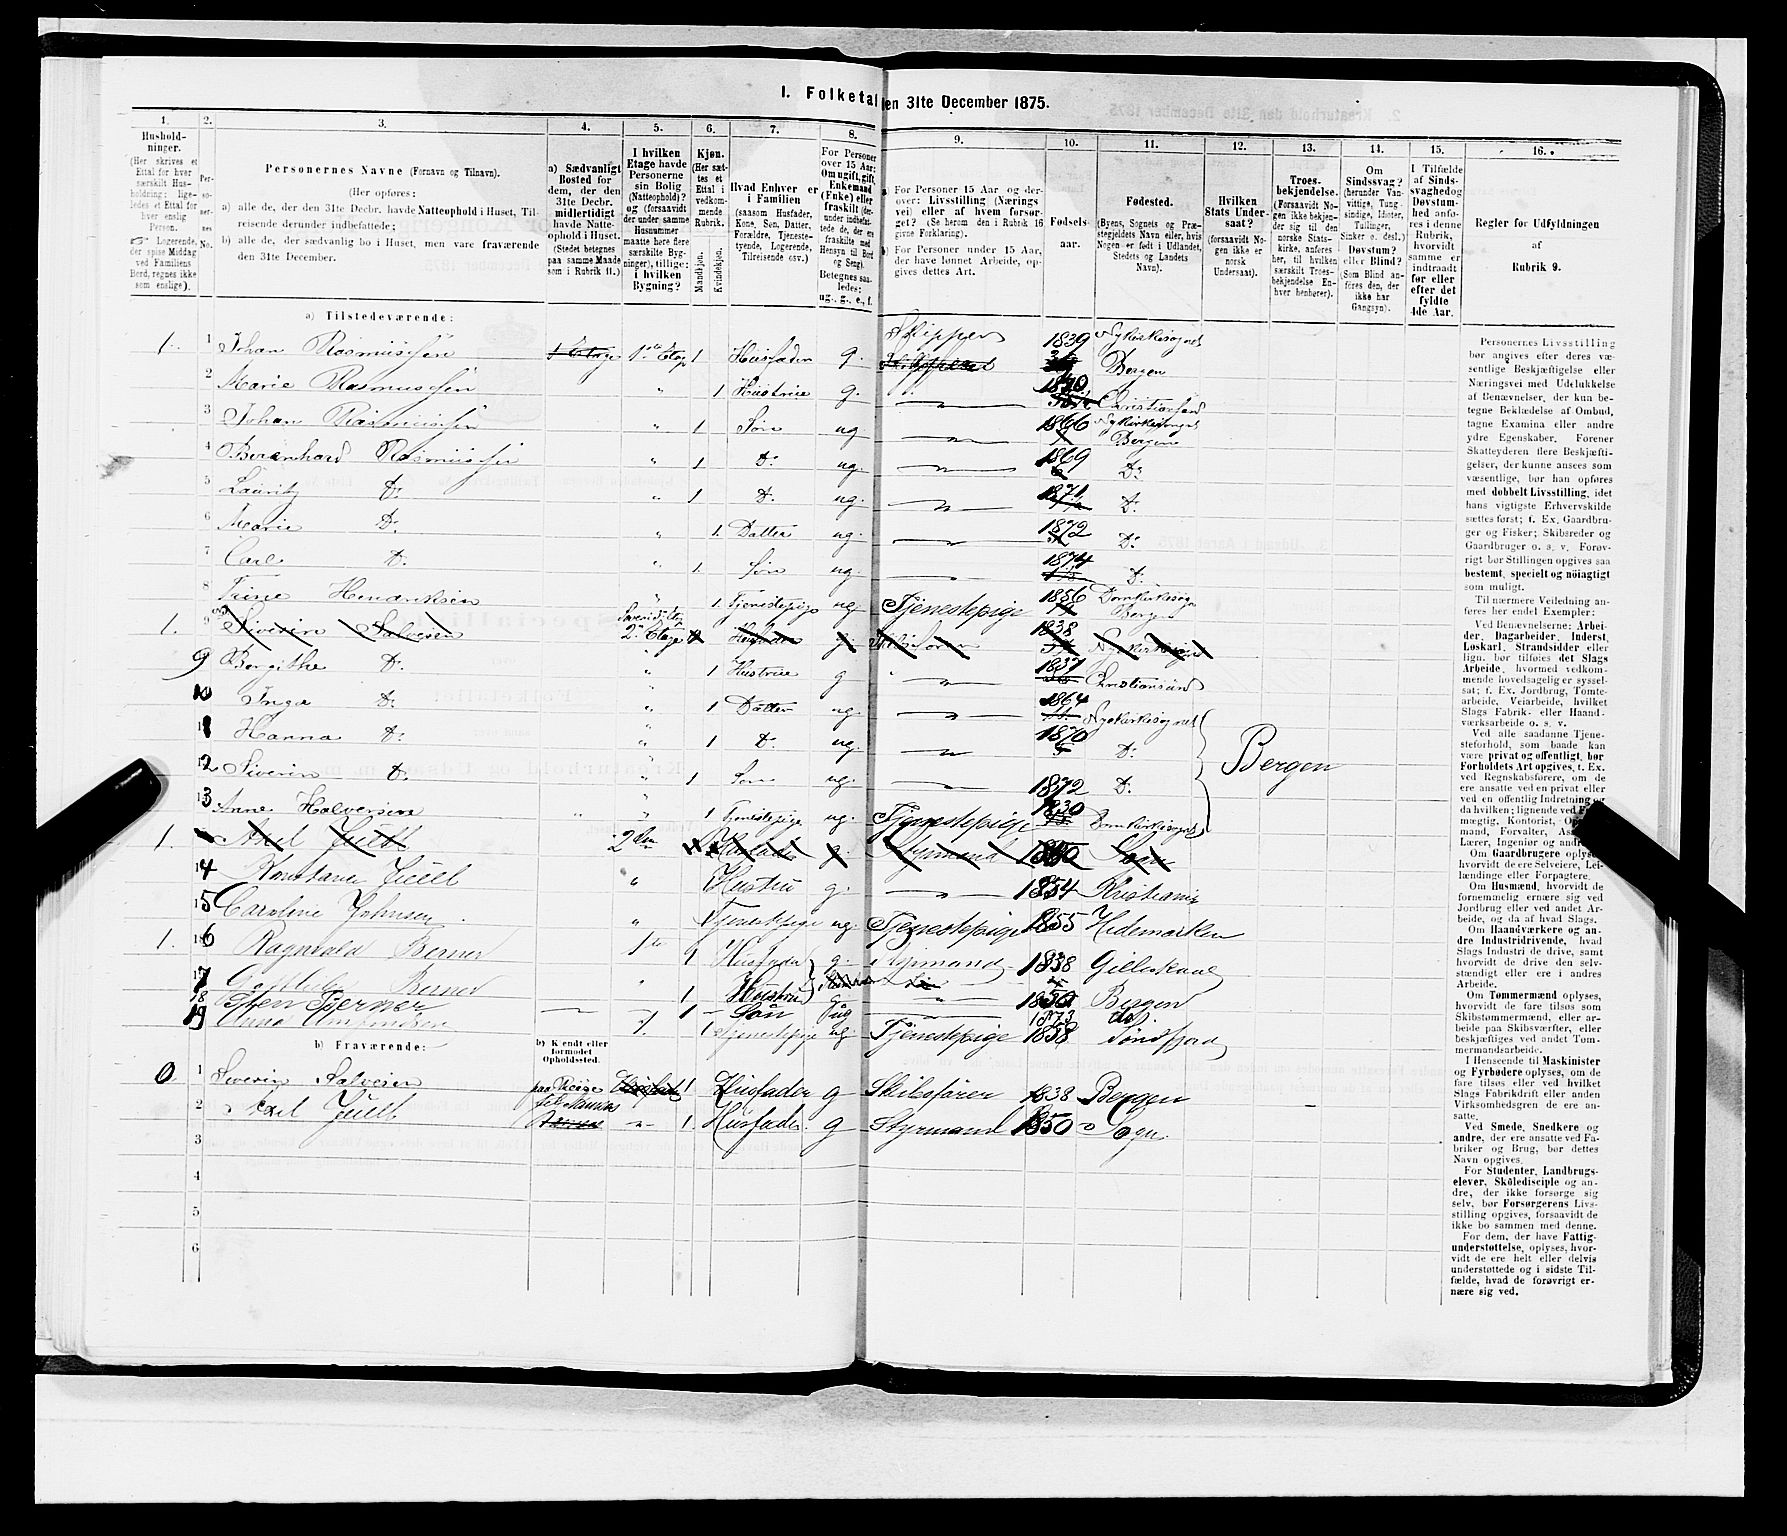 I. Folketal den 31te December 1875.
1. 2. 3. 4. 5. 6. 7. 8. 9. 10. 11. 12. 13. 14. 15. 16.
Husholdninger. (Her skrives et Ettal for hver særskilt Husholdning; ligeledes et Ettal for hver enslig Person. Logerende, der spise Middag ved Familiens Bord, regnes ikke som enslige).
Personernes No.
Personernes Navne (Fornavn og Tilnavn).
(Her opføres:
a) alle de, der den 31te Decbr. havde Natteophold i Huset, Tilreisende derunder indbefattede;
b) alle de, der sædvanlig bo i Huset, men vare fraværende den 31te December.
a) Sædvanligt Bosted for dem, der den 31te Decbr. midlertidigt havde Natteophold i Huset. (Stedet betegnes paa samme Maade som i Rubrik 11.)
I hvilken Etage havde Personerne sin Bolig (Natteophold)? og (forsaavidt der under samme Husnummer maatte høre flere særskilte Bygninger), tillige: i hvilken Bygning?
Kjøn. (Her sættes et Ettal i vedkommende Rubrik.
Mandkjøn. Kvindekjøn.
Hvad Enhver er i Familien (saasom Husfader, Kone, Søn, Datter, Forældre, Tjenestetyende, Logerende, Tilreisende osv.)
For Personer over 15 Aar: Om ugift, gift, Enkemand (Enke) eller fraskilt (derunder indbefattede de, der ere fraskilte med Hensyn til Bord og Seng). Betegnes saaledes: ug., g., e., f.
a For Personer 15 Aar og derover: Livsstilling (Næringsvei) eller af hvem forsørget? (Se herom den i Rubrik 16 givne Forklaring).
b) For Personer under 15 Aar, der have lønnet Arbeide, opgives dettes Art.
Fødselsaar.
Fødested. (Byens, Sognets og Præstegjeldets Navn eller, hvis Nogen er født i Udlandet, Stedets og Landets Navn).
Hvilken Stats Undersaat? (forsaavidt Nogen ikke er norsk Undersaat).
Troesbekjendelse. (Forsaavidt Nogen ikke bekjender sig til den norske Statskirke, anføres her, til hvilken særskilt Troesbekjendelse Enhver henhører).
Om Sindssvag? (herunder Vanvittige, Tungsindige, Idioter, Tullinger, Sinker o. desl.) Døvstum? eller Blind? (Som Blind anføres den, der ikke har Gangsyn).
I Tilfælde af Sindssvaghed og Døvstumhed anføres i denne Rubrik, hvorvidt samme er indtraadt før eller efter det fyldte 4de Aar.
Regler for Udfyldningen af Rubrik 9.
a) Tilstedeværende:
1. 1 Johan Rasmussen 1 Etage 1ste Etage 1 Husfader g. Skipper 1839 Nykirkesognet Bergen
2 Marie Rasmussen " 1 Hustrue g. 1840 Christiansand
3 Johan Rasmussen " 1 Søn ug 1866 Nykirkesognet Bergen
4 Berenhard Rasmussen " 1 Do ug. 1869 Do
5 Lauritz Do " 1 D. ug. 1871 Do
6 Marie Do " 1. Datter ug. 1872 Do
7 Carl Do " 1. Søn ug. 1874 D.
8 Trine Hendriksen " 1. Tjenestepige ug Tjenestepige 1856 Domkirkesogn Bergen
1. 9 Siverin Salvesen 2. Etage Husfader g. 1838 Nykirkesogn
9 Bergithe D. " 1 Hustrue g " 1837 Christiansund
10 Inga Do " 1 Datter ug. 1864 Nykirkesognet
11 Hanna Do " 1 D. ug. 1870 Do
Bergen
12 Siverin Do " 1 Søn ug. 1872 D.
13 Anne Halvorsen " " 1 Tjenestepige ug. Tjenestepige 1830 Domkirkesognet
1. Axel Juell 2den Husfader g. Styrmand 1850 Sogn
14 Konstance Juell " Hustru g. 1854 Kristiania
15 Caroline Johnsen. " Tjenestepige ug. Tjenestepige 1855 Hedemarken
1. 16 Ragnvald Berner 1 Husfader g. Styrmand 1838 Gilleskaal
17 Berner " 1 Hustru " 1850 Bergen
18 Sten Berner 1 Søn ug 1873 do.
19 Anna Amundsen 1 Tjenestepige ug. Tjenestepige 1858 Søndfjord
b) Fraværende:
b) Kjendt eller formodet Opholdssted.
0 1 Severin Salvesen paa Reise 1 Husfader g Skibsfører 1838 Bergen
2 Axel Juell 1. Husfader. g Styrmand 1850 Sogn.
3
4
5
6
Personernes Livsstilling bør angives efter deres væsentlige Beskjæftigelse eller Næringsvei med Udelukkelse af Benævnelser, der kun betegne Beklædelse af Ombud, tagne Examina eller andre ydre Egenskaber. Forener Skatteyderen flere Beskjæftigelser, der kunne ansees som væsentlige, bør han opføres med dobbelt Livsstilling, idet hans vigtigste Erhvervskilde sættes først; f. Ex. Gaardbruger og Fisker; Skibsreder og Gaardbruger o. s. v. Forøvrigt bør Stillingen opgives saa bestemt, specielt og nøiagtigt som muligt.
Til nærmere Veiledning anføres her endel Exempler:
Ved Benævnelserne: Arbeider, Dagarbeider, Inderst, Løskarl, Strandsidder eller lign. bør tilføies det Slags Arbeide, hvormed vedkommende hovedsagelig er sysselsat; f. Ex. Jordbrug, Tomtearbeide, Veiarbeide, hvilket Slags Fabrik- eller Haandværksarbeide o. s. v.
Ved alle saadanne Tjenesteforhold, som baade kan være privat og offentligt, bør Forholdets Art opgives, f. Ex. ved Regnskabsførere, om de ere ansatte ved en privat eller ved en offentlig Indretning og da hvilken;
Om Gaardbrugere oplyses, hvorvidt de ere Selveiere, Leilændinge eller Forpagtere.
Om Husmænd, hvorvidt de fornemmelig ernære sig ved Jordbrug eller ved andet Arbeide, og da af hvad Slags.
Om Haandværkere og andre Industridrivende, hvad Slags Industri de drive, samt hvorvidt de drive den selvstændigt eller ere i andres Arbeide.
Om Tømmermænd oplyses, hvorvidt de fare tilsøs som Skibstømmermænd, eller arbeide paa Skibsværfter, eller beskjæftiges ved andet Tømmermandsarbeide.
I Henseende til Maskinister og Fyrbødere oplyses, om de fare tilsøs eller ved hvilket Slags Fabrikdrift eller anden Virksomhedsgren de ere ansatte.
Ved Smede, Snedkere og andre, der ere ansatte ved Fabriker og Brug, bør dettes Navn opgives.
For Studenter, Landbrugselever, Skoledisciple og andre, der ikke forsørge sig selv, bør Forsørgerens Livsstilling opgives, forsaavidt de ikke bo sammen med denne.
For dem, der have Fattigunderstøttelse, oplyses, hvorvidt de ere helt eller delvis understøttede og i sidste Tilfælde, hvad de forøvrigt ernære sig ved.